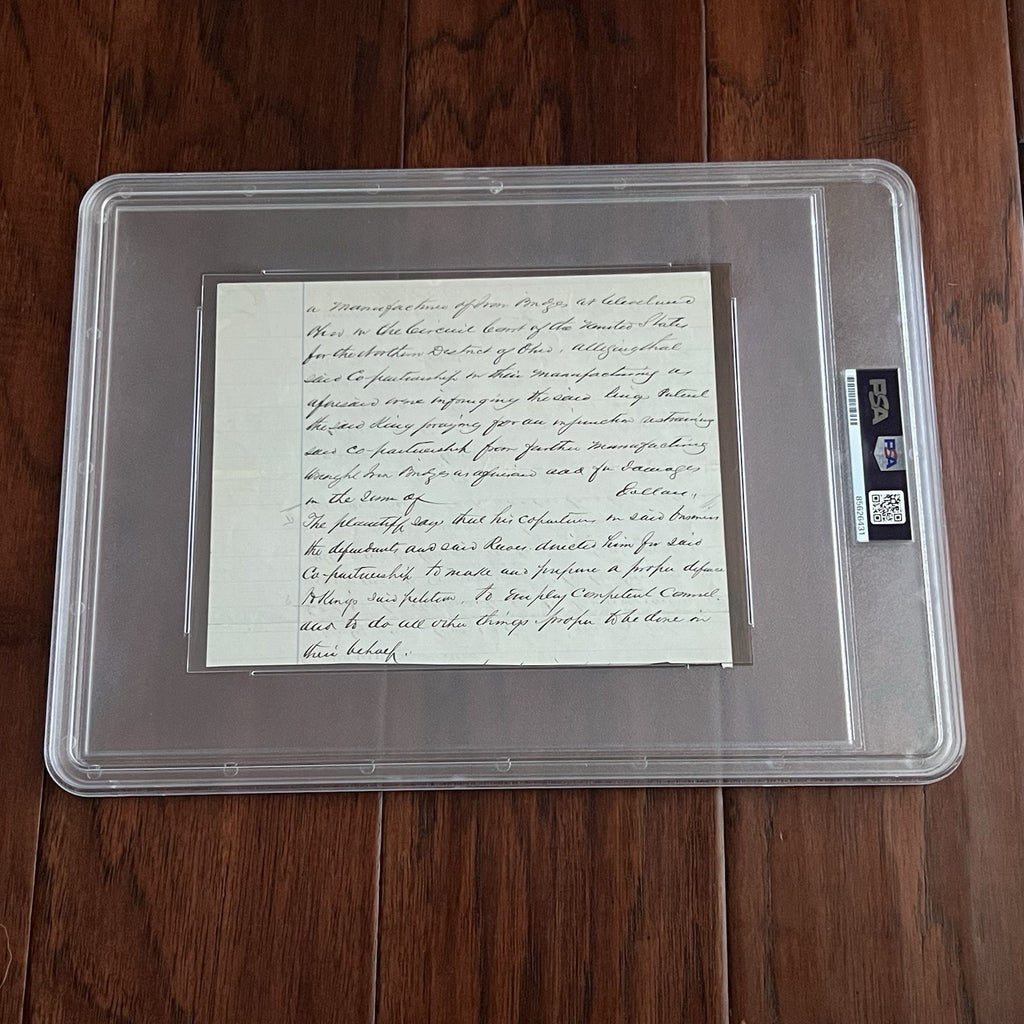 a Manufacturer of Iron Bridges at Cleveland
Ohio in the Circuit Court of the United States
for the Northern District of Ohio, alleging that
said Co-partnership in their manufacturing as
aforesaid were infringing the said Kings Patent
the said King praying for an injunction restraining
said co-partnership from further Manufacturing
Wrought Iron Bridges as aforesaid and for Damages
in the Sum of Dollars,
The plaintiff says that his copartners in said business
the defendants and said Reeves directed him for said
Co-partnership to make and prepare a proper defence
to Kings said petition, to employ Competent Counsel,
and to do all other things proper to be done in
their behalf.
PSA
PSA
85626431